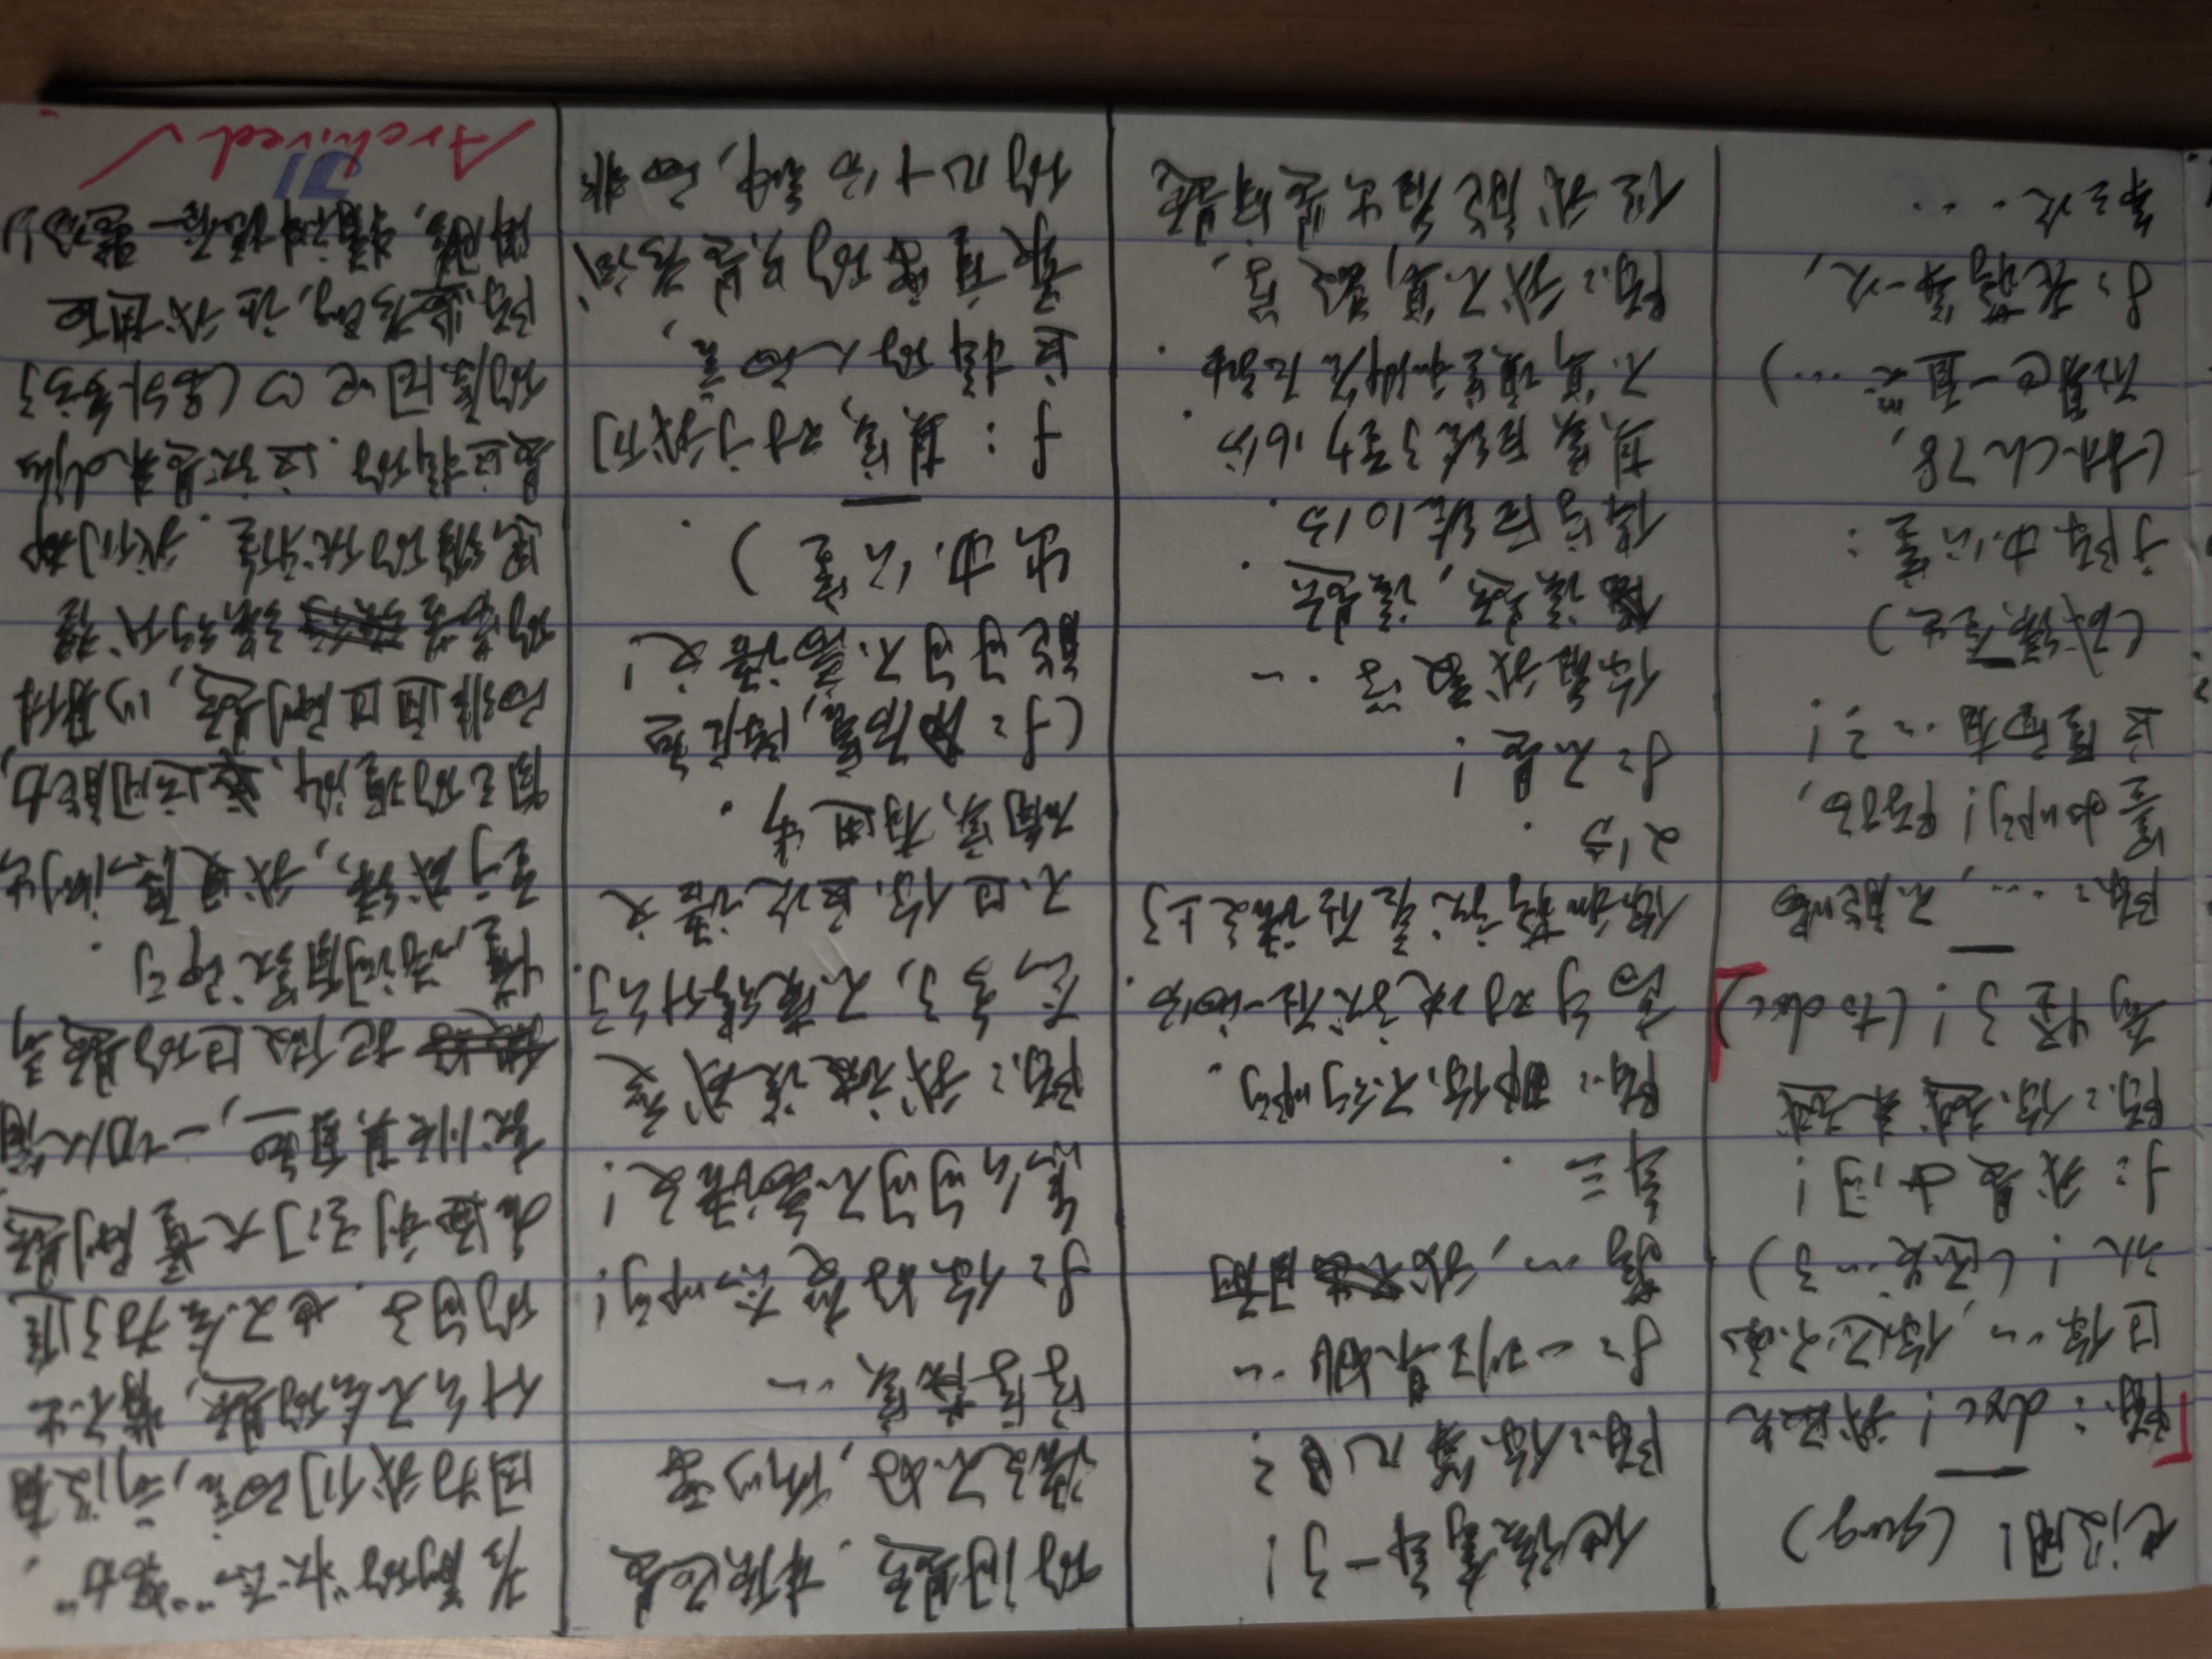 也没用！(gung)
陈：dxc！我
过你…，你还不承
认！(还发…了)
f：我是女同！
陈：你越来越
奇怪了！(to dxc)
陈：…，不能喝
墨水啊！陈抬，
这里面有…？！
(成绩全出)
于陈办公室：
(林Ch78，
在身也一直哭…)
f：老蒋第一次，
第三次…
他该拿第一了！
陈：你第几目？
f：一班某姚…
蒋…，我目前
第三．
陈：那你不行啊．
高手对决就在一两分．
你和蒋就差在语文上了
21分．
f：不是！
你看我数学…
误题，误题．
得写后给10分．
其实后给了至少16分．
不算填空和
陈：我不算数学，
但我能看出是审题
的问题．本质还是
语文不好，所以要
字字落实…
f：你好变态啊！
怎么句句不离语文！
陈：我被说成变
态多了，不觉得什么了．
不过你这次语文
确实有进步．
(f：厉害，陈居然
能句句不离语文！
出办公室)．
f：其实对于我们
这样的人而言，
最重要的只是考试
的几十分钟，而非
考前的“状态”“努力”，
因为我们而言，前没有
什么不会的题，背不出
的句子．也不会为了追
名逐利专门大量刷题
就顺其自然，一切从简
把做过的题弄
懂，诗词有默即可．
至于成绩，我更愿测出
自己的理解、运用能力，
而非通过刷题，以身体
的劳苦强行代替
思维的优雅．我们都
是这样的．这就是来djhs
的原因吧♡(另外多亏了
陈监考Eng，让我热血
沸腾，精神振奋一整场！)
31
Archived ✓